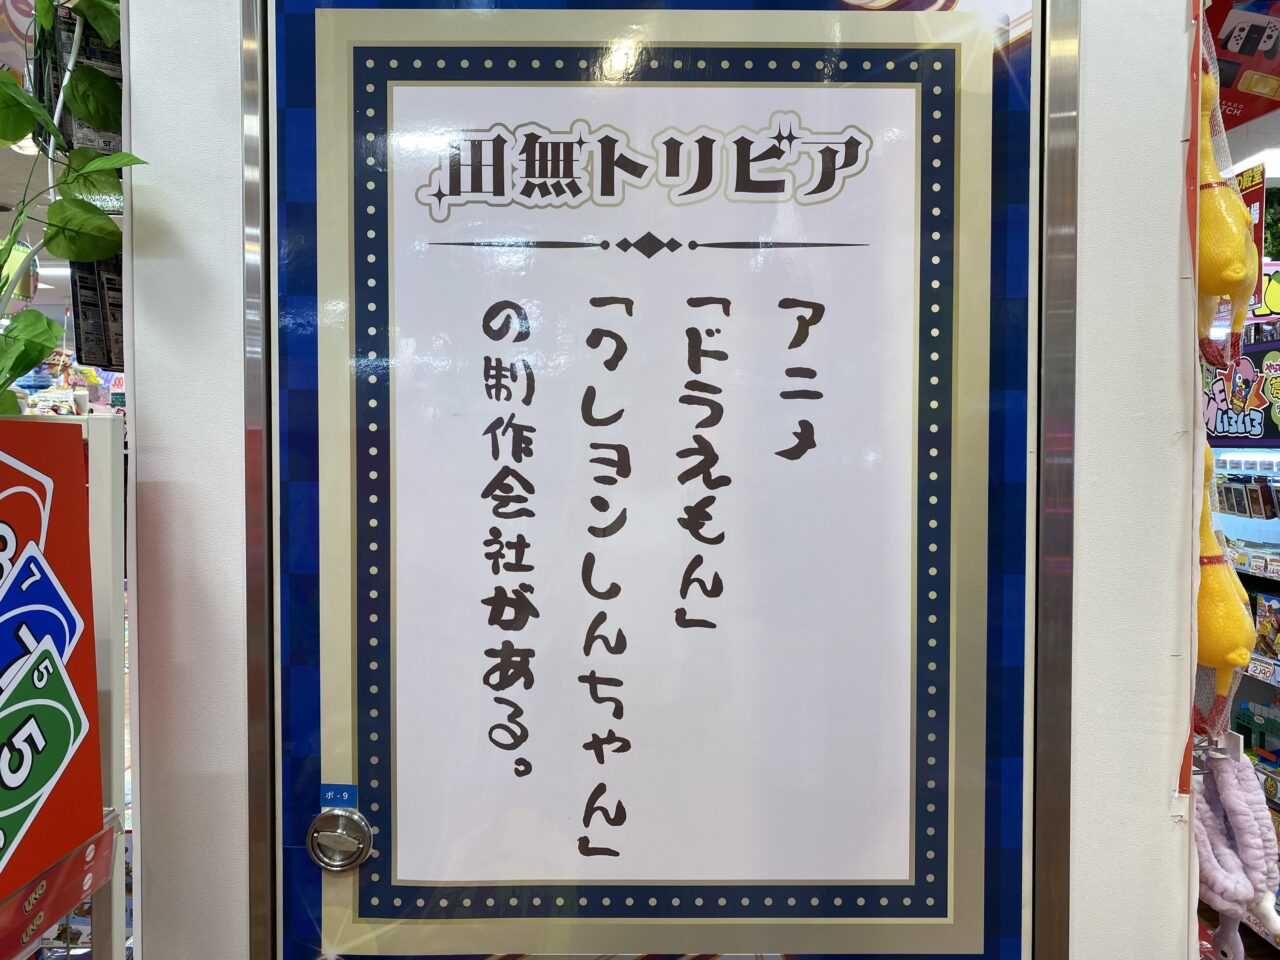 田無トリビア
アニメ
「ドラえもん」
「クレヨンしんちゃん」
の制作会社がある。
ボ-9
UNO
UNO
いろいろ